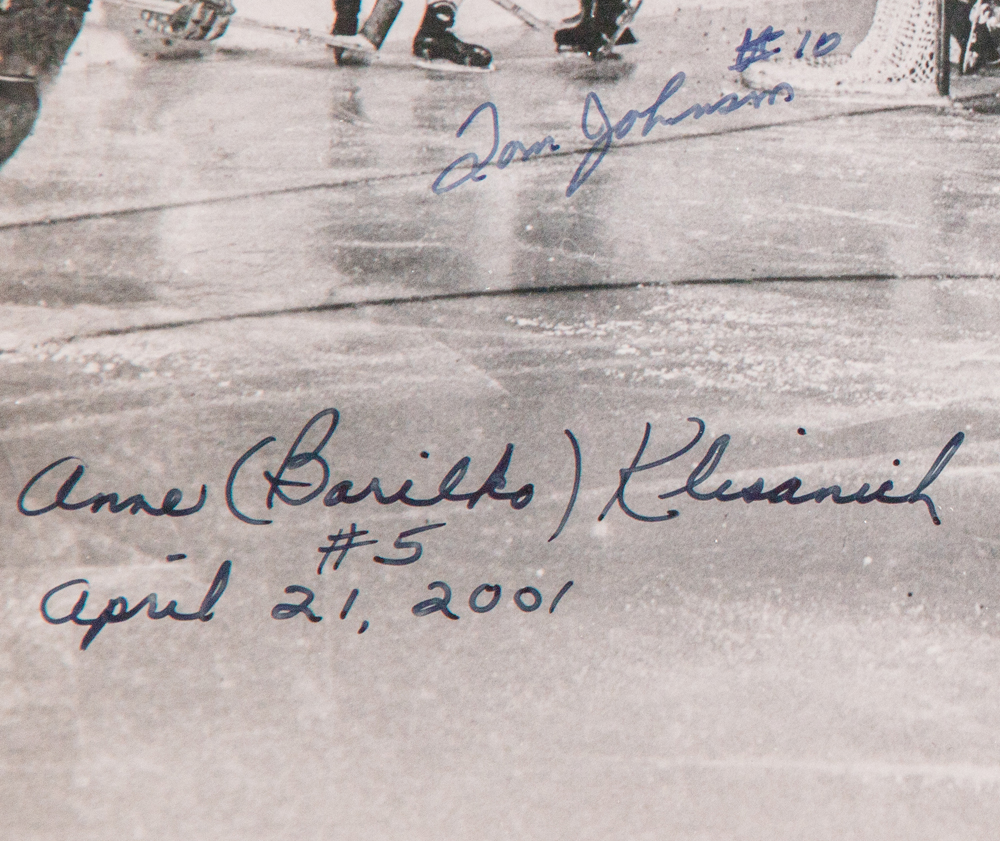 #10
Tom Johnson
Anne (Barilko) Klisanich
#5
April 21, 2001